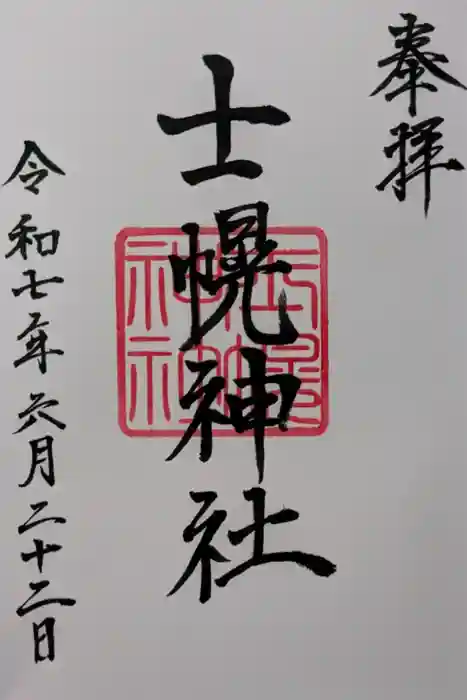 奉拝
士幌神社
令和七年六月二十二日